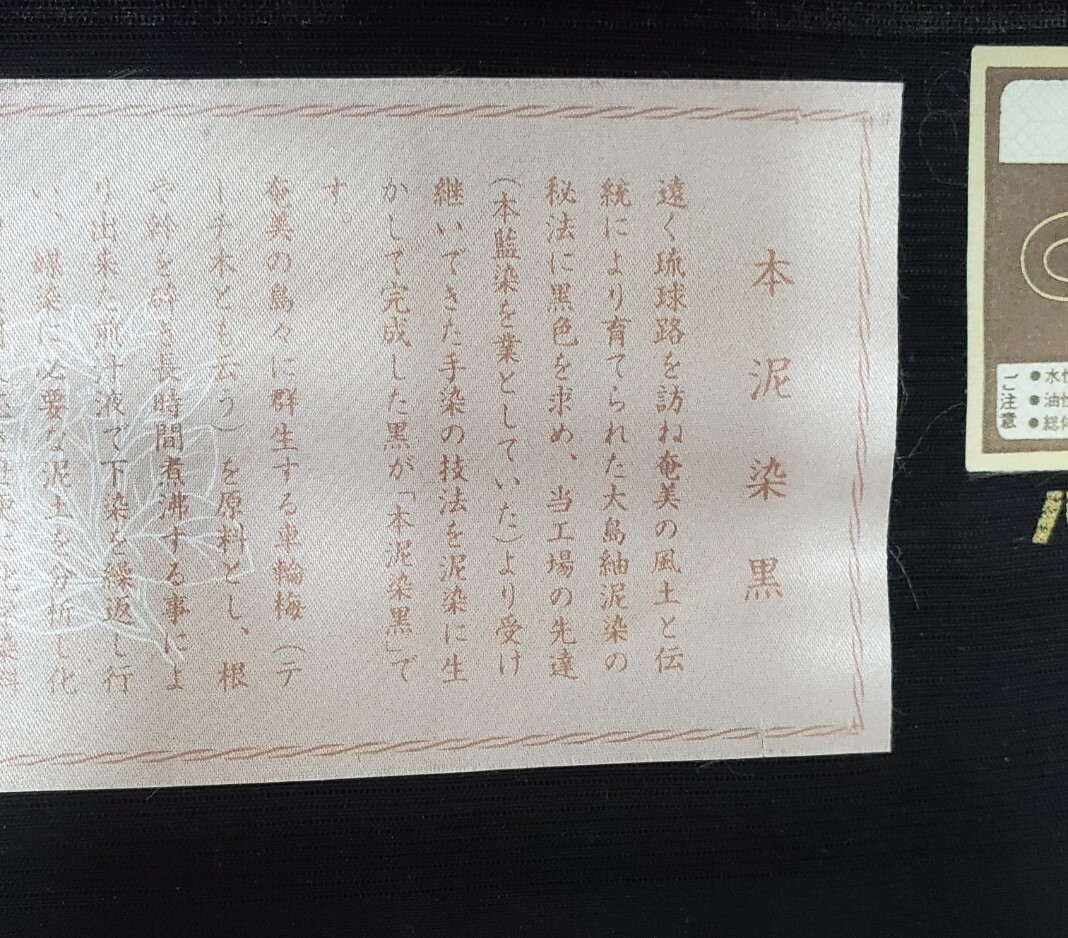 本泥染黒
遠く琉球路を訪ね奄美の風土と伝
統により育てられた大島紬泥染の
秘法に黒色を求め、当工場の先達
(本藍染を業としていた)より受け
継いできた手染の技法を泥染に生
かして完成した黒が「本泥染黒」で
す。
奄美の島々に群生する車輪梅(テ
ーチ木とも云う)を原料とし、根
や幹を砕き長時間煮沸する事によ
り出来た煎汁液で下染を繰返し行
い、媒染に必要な泥土を分析し化
ご注意
●水性
●油性
●総体